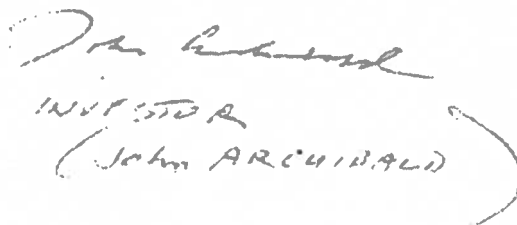 John Archibald
INVESTOR
(John ARCHIBALD)